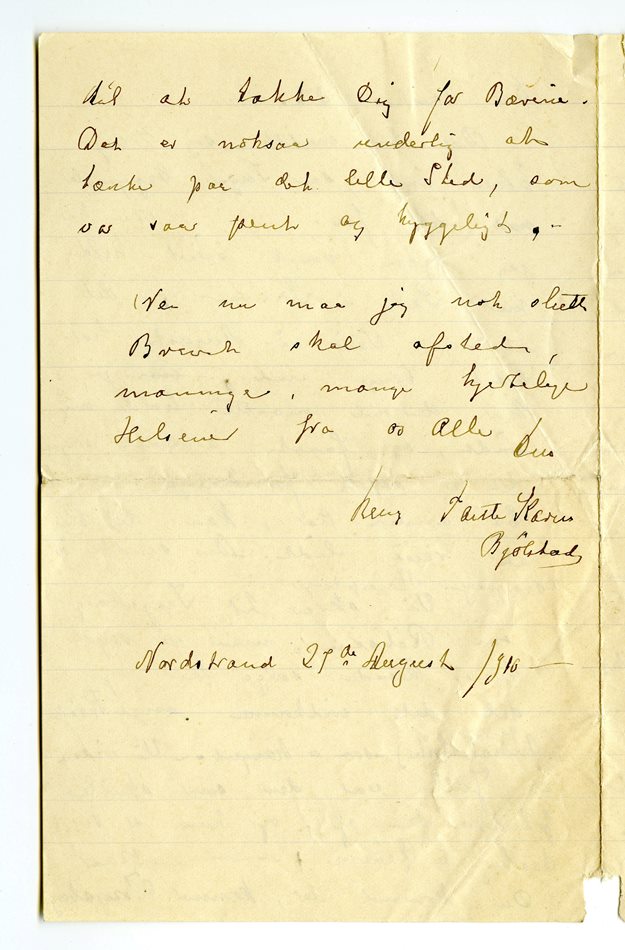 til at takke Dig for Bærene.
Det er noksaa underlig at
tænke paa det lille Sted, som
var saa pent og hyggeligt, -
Nei nu maa jeg nok slutte
Brevet skal afsted,
mange, mange hjertelige
Hilsener fra os Alle
Din
heng. Tante Karen
Bjölstad
Nordstrand 27de August /910 —